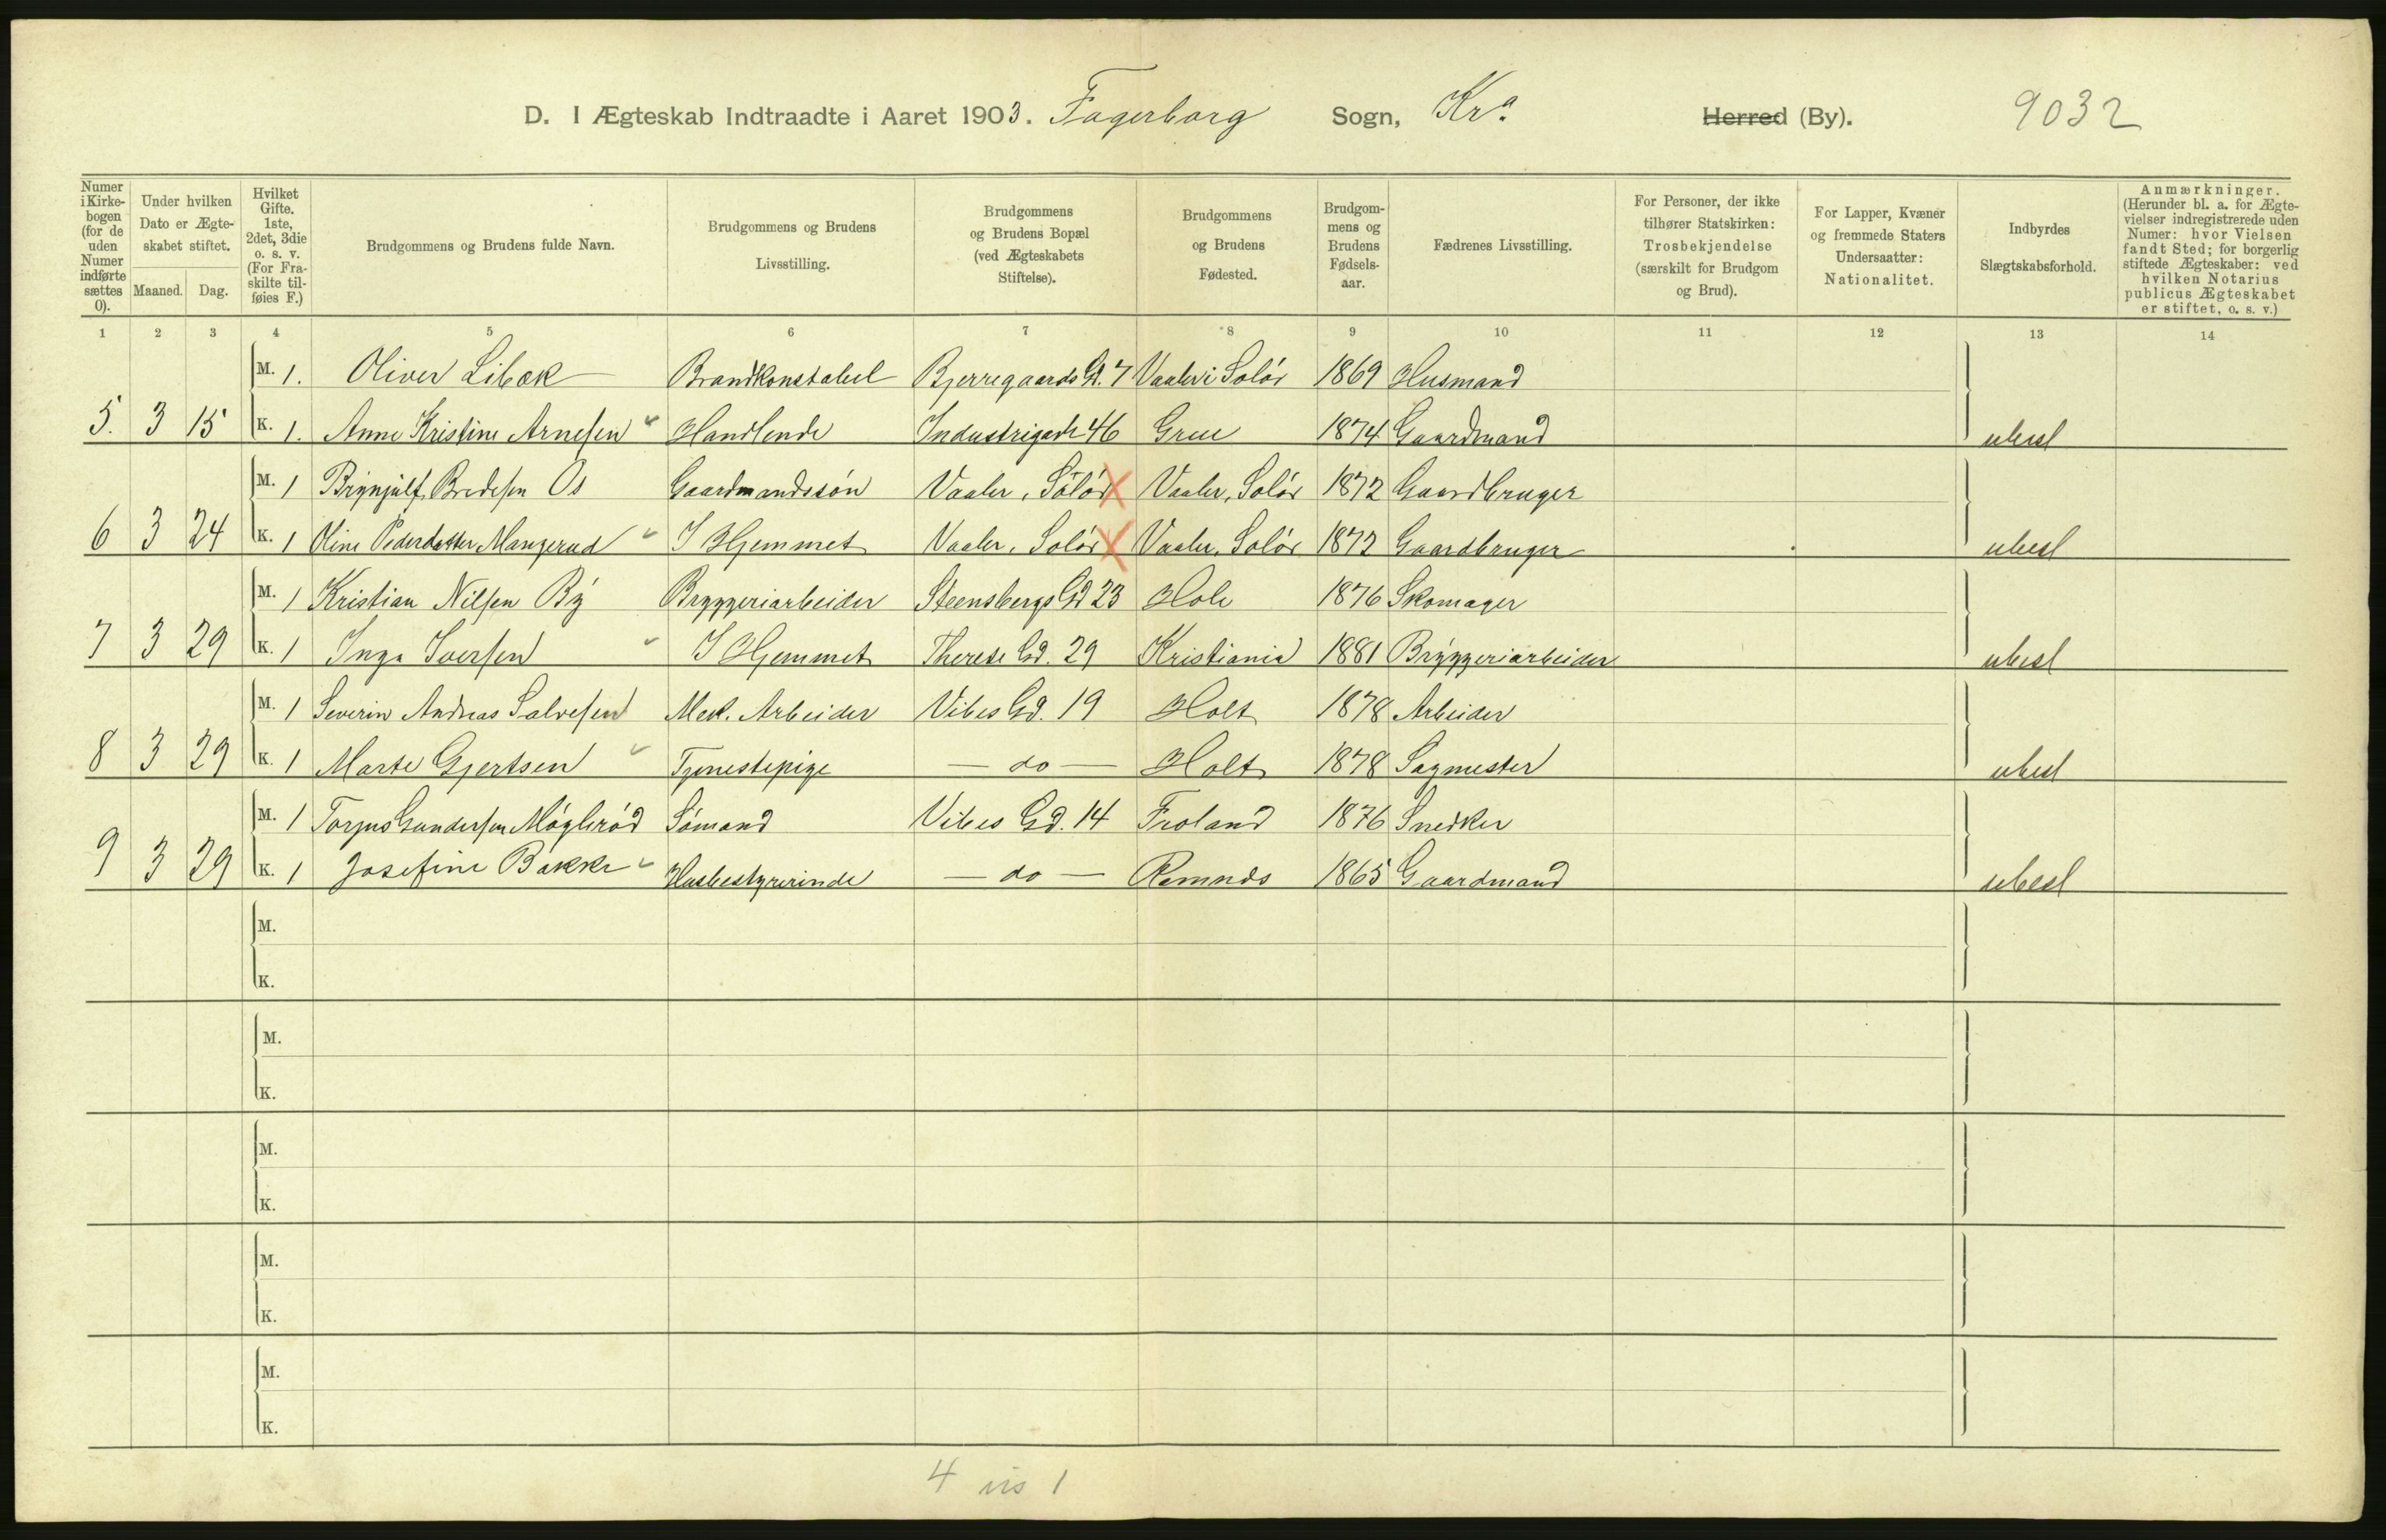 D. I Ægteskab Indtraadte i Aaret 1903. Fagerborg Sogn, Kra. Herred (By). 9032
Numer i Kirkebogen (for de uden Numer indførte sættes 0).
Under hvilken Dato er Ægteskabet stiftet.
Maaned. Dag.
Hvilket Gifte. 1ste, 2det, 3die o. s. v. (For Fraskilte tilføies F.)
Brudgommens og Brudens fulde Navn.
Brudgommens og Brudens Livsstilling.
Brudgommens og Brudens Bopæl (ved Ægteskabets Stiftelse).
Brudgommens og Brudens Fødested.
Brudgommens og Brudens Fødselsaar.
Fædrenes Livsstilling.
For Personer, der ikke tilhører Statskirken: Trosbekjendelse (særskilt for Brudgom og Brud).
For Lapper, Kvæner og fremmede Staters Undersaatter: Nationalitet.
Indbyrdes Slægtskabsforhold.
Anmærkninger. (Herunder bl. a. for Ægtevielser indregistrerede uden Numer: hvor Vielsen fandt Sted; for borgerlig stiftede Ægteskaber: ved hvilken Notarius publicus Ægteskabet er stiftet, o. s. v.)
1 2 3 4 5 6 7 8 9 10 11 12 13 14
M. 1. Oliver Libæk Brandkonstabel Bjerregaards Gd. 7 Vaaler i Solør 1869 Husmand
5. 3 15 K. 1. Anne Kristine Arnesen Handlende Industrigade 46 Grue 1874 Gaardmand ubesl
M. 1 Brynjulf Bredesen Os Gaardmandssøn Vaaler, Solør X Vaaler, Solør 1872 Gaardbruger
6 3 24 K. 1 Oline Pedersdatter Mangerud I Hjemmet Vaaler, Solør X Vaaler, Solør 1872 Gaardbruger ubesl
M. 1 Kristian Nilsen By Bryggeriarbeider Steensbergs Gd 23 Hole 1876 Skomager
7 3 29 K. 1 Inga Iversen I Hjemmet Therese Gd. 29 Kristiania 1881 Bryggeriarbeider ubesl
M. 1 Severin Andreas Salvesen Mek. Arbeider Vibes Gd. 19 Holt 1878 Arbeider
8 3 29 K. 1 Marte Gjertsen Tjenestepige — do — Holt 1878 Sagmester ubesl
M. 1 Torjus Gundersen Møglerød Sømand Vibes Gd. 14 Froland 1876 Snedker
9 3 29 K. 1 Josefine Bakke Husbestyrerinde — do — Romnds 1865 Gaardmand ubesl
M.
K.
M.
K.
M.
K.
M.
K.
M.
K.
4 vis 1